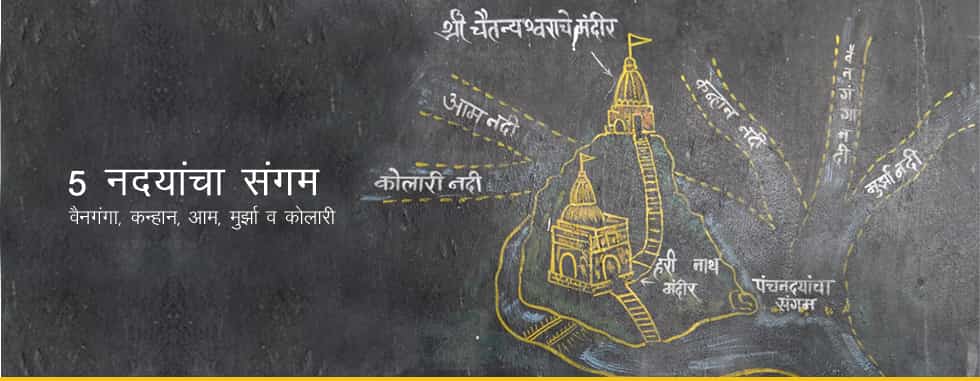 5 नदयांचा संगम
वैनगंगा, कन्हान, आम, मुर्झा व कोलारी
श्री चैतन्यश्वराचे मंदीर
आम नदी
कोलारी नदी
कन्हान नदी
वैनगंगा नदी
मुर्झा नदी
हरी नाथ
मंदीर
पंचनदयांचा
संगम